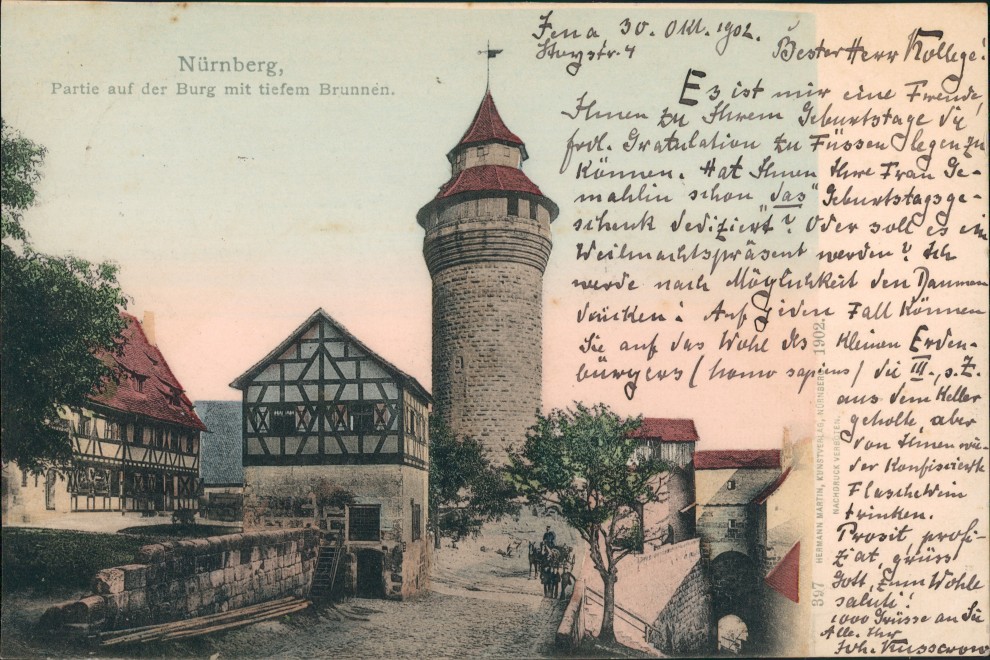 Nürnberg,
Partie auf der Burg mit tiefem Brunnen.
Jena 30. Okt. 1902.
Bester Herr Kollege!
Es ist mir eine Freude,
Ihnen zu Ihrem Geburtstage die
frdl. Gratulation zu Füssen legen zu
können. Hat Ihnen Ihre Frau Ge-
mahlin schon "das" Geburtstagsge-
schenk dediziert? Oder soll es ein
Weihnachtspräsent werden? Ich
werde nach Möglichkeit den Daumen
drücken! Auf jeden Fall können
Sie auf das Wohl des kleinen Erden-
bürgers (homo sapiens) die III., s. Z.
aus dem Keller
geholte, aber
von Ihnen wie-
der konfiszierte
Flasche Wein
trinken.
Prosit, profi-
ziat, grüss
Gott, zum Wohle
saluti!
1000 Grüsse an Sie
Alle. Ihr
Joh.
397 HERMANN MARTIN, KUNSTVERLAG, NÜRNBERG 1902.
NACHDRUCK VERBOTEN.